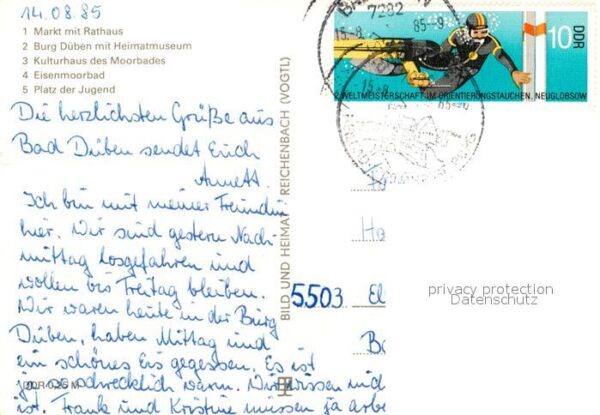 14.08.85
1 Markt mit Rathaus
2 Burg Düben mit Heimatmuseum
3 Kulturhaus des Moorbades
4 Eisenmoorbad
5 Platz der Jugend
Die herzlichsten Grüße aus
Bad Düben sendet Euch
Annett.
Ich bin mit meiner Freundin
hier. Wir sind gestern Nach-
mittag losgefahren und
wollen bis Freitag bleiben.
Wir waren heute in der Burg
Düben, haben Mittag und
ein schönes Eis gegessen. Es ist
ja so schrecklich warm. Wir wissen nicht
ist. Frank und Kristine müssen ja arbe
BILD UND HEIMAT REICHENBACH (VOGTL)
7282
15.-8. 85-9
10
DDR
2. WELTMEISTERSCHAFT IM ORIENTIERUNGSTAUCHEN, NEUGLOBSOW
Ha
5503 El
Ba
privacy protection
Datenschutz